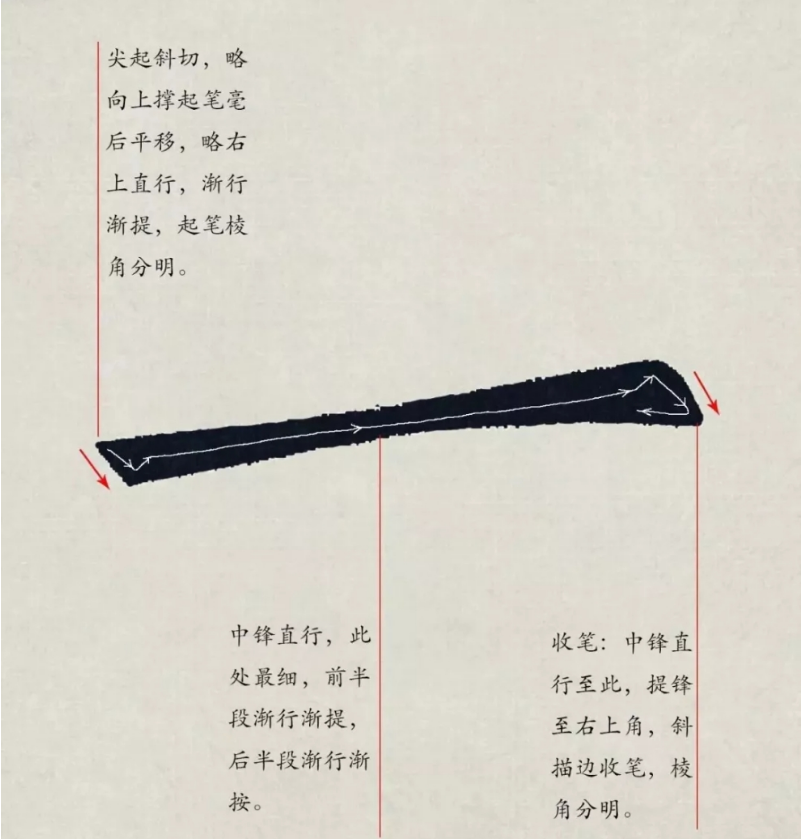 尖起斜切，略
向上撑起笔毫
后平移，略右
上直行，渐行
渐提，起笔棱
角分明。
中锋直行，此
处最细，前半
段渐行渐提，
后半段渐行渐
按。
收笔：中锋直
行至此，提锋
至右上角，斜
描边收笔，棱
角分明。